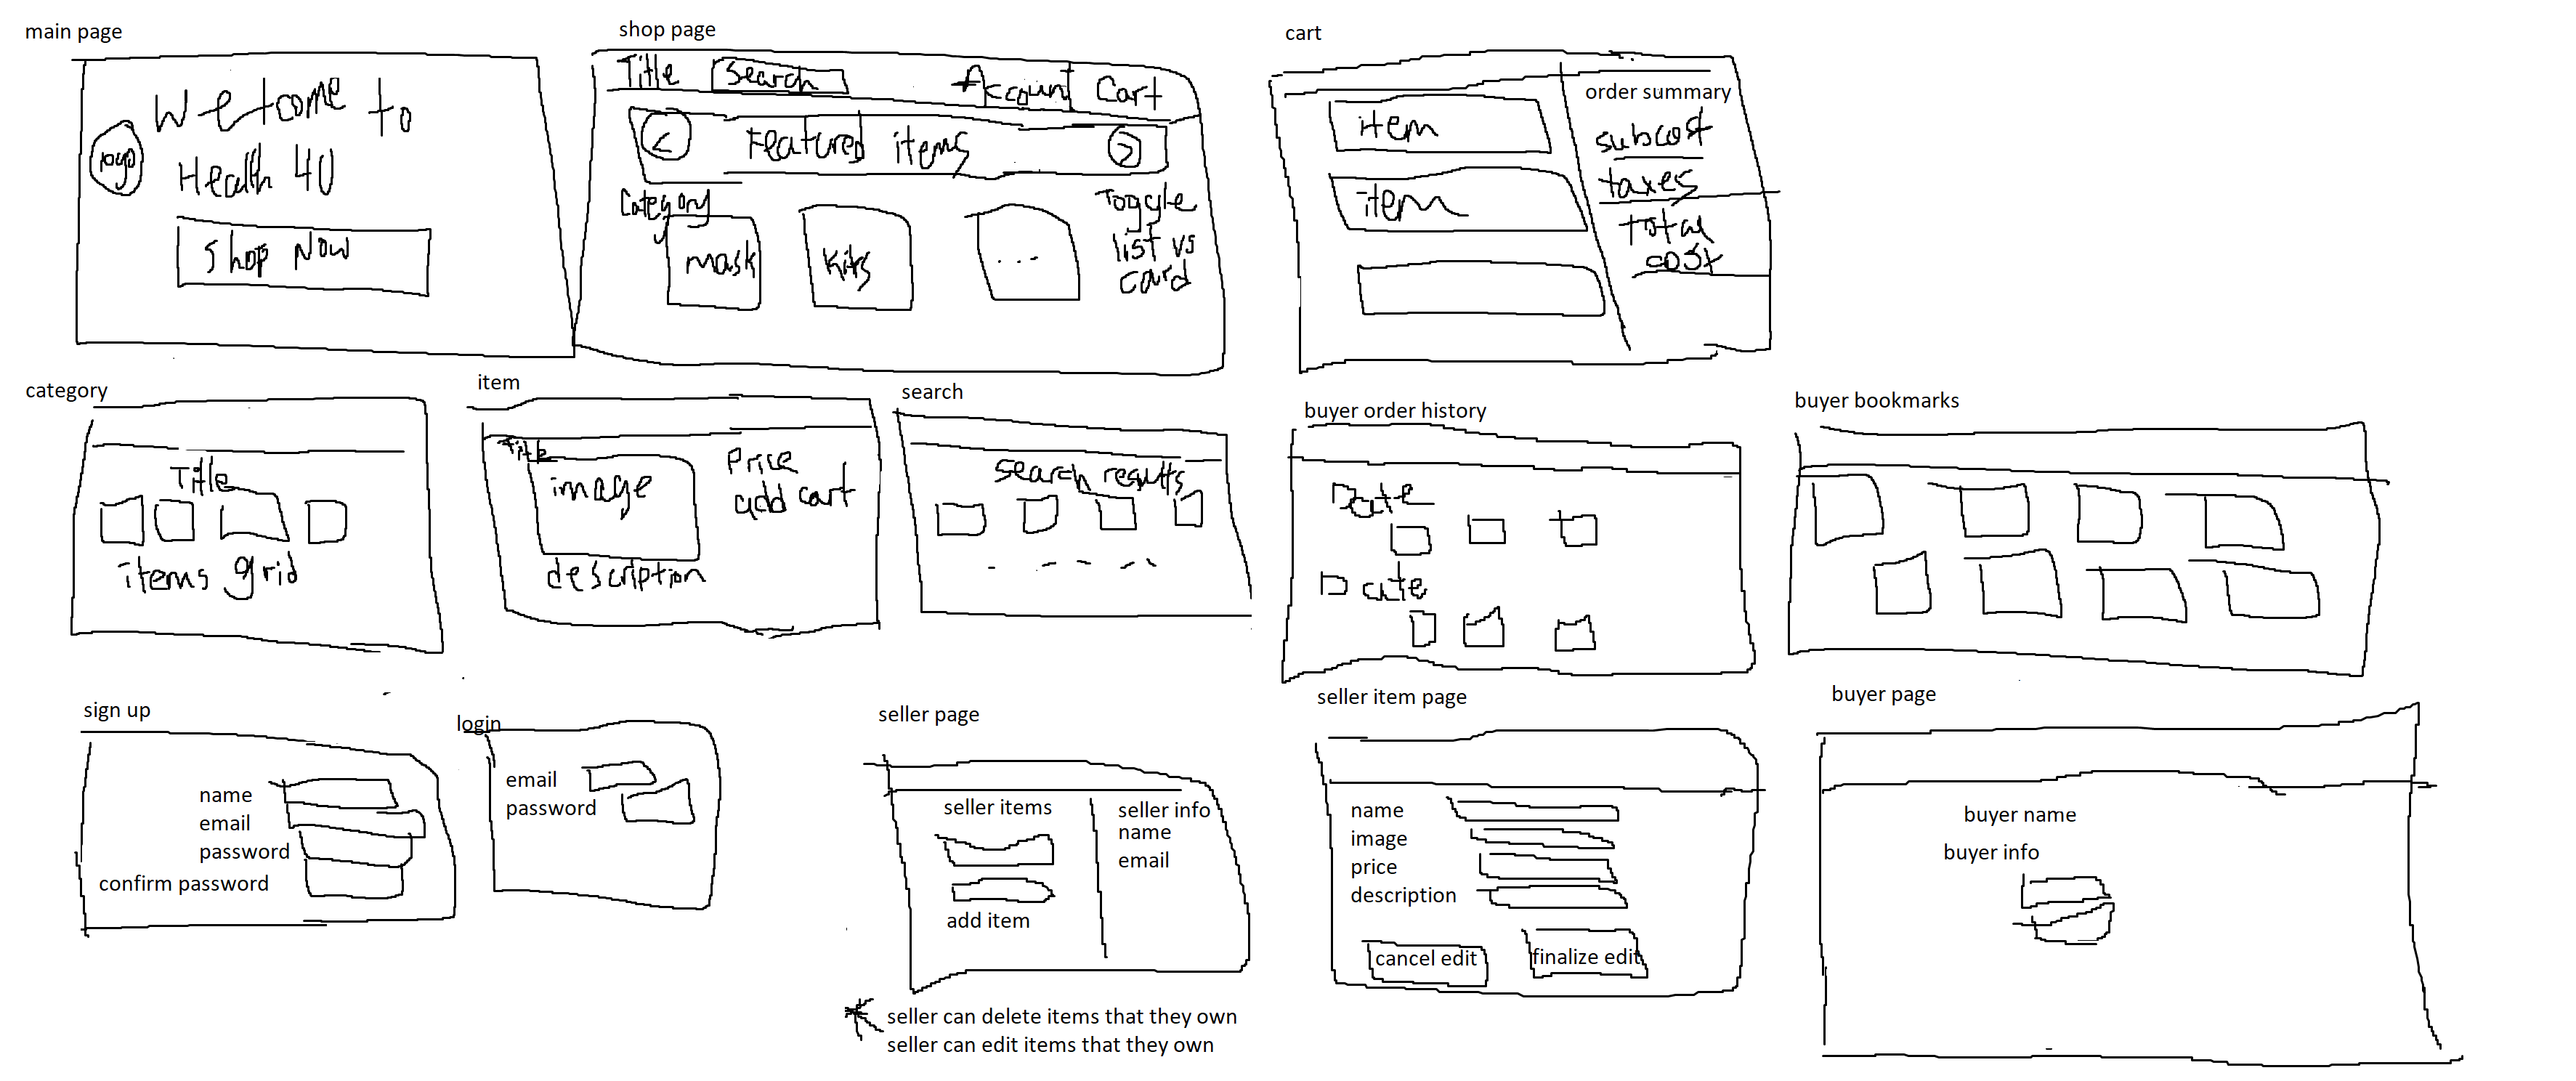 main page
Welcome to
Health 4U
logo
Shop Now
shop page
Title
Search
Account
Cart
<
Featured items
>
Category
mask
Kits
...
Toggle
list vs
card
cart
item
item
order summary
subcost
taxes
total
cost
category
Title
items grid
item
Title
image
Price
add cart
description
search
search results
buyer order history
Date
Date
buyer bookmarks
sign up
name
email
password
confirm password
login
email
password
seller page
seller items
add item
seller info
name
email
seller can delete items that they own
seller can edit items that they own
seller item page
name
image
price
description
cancel edit
finalize edit
buyer page
buyer name
buyer info